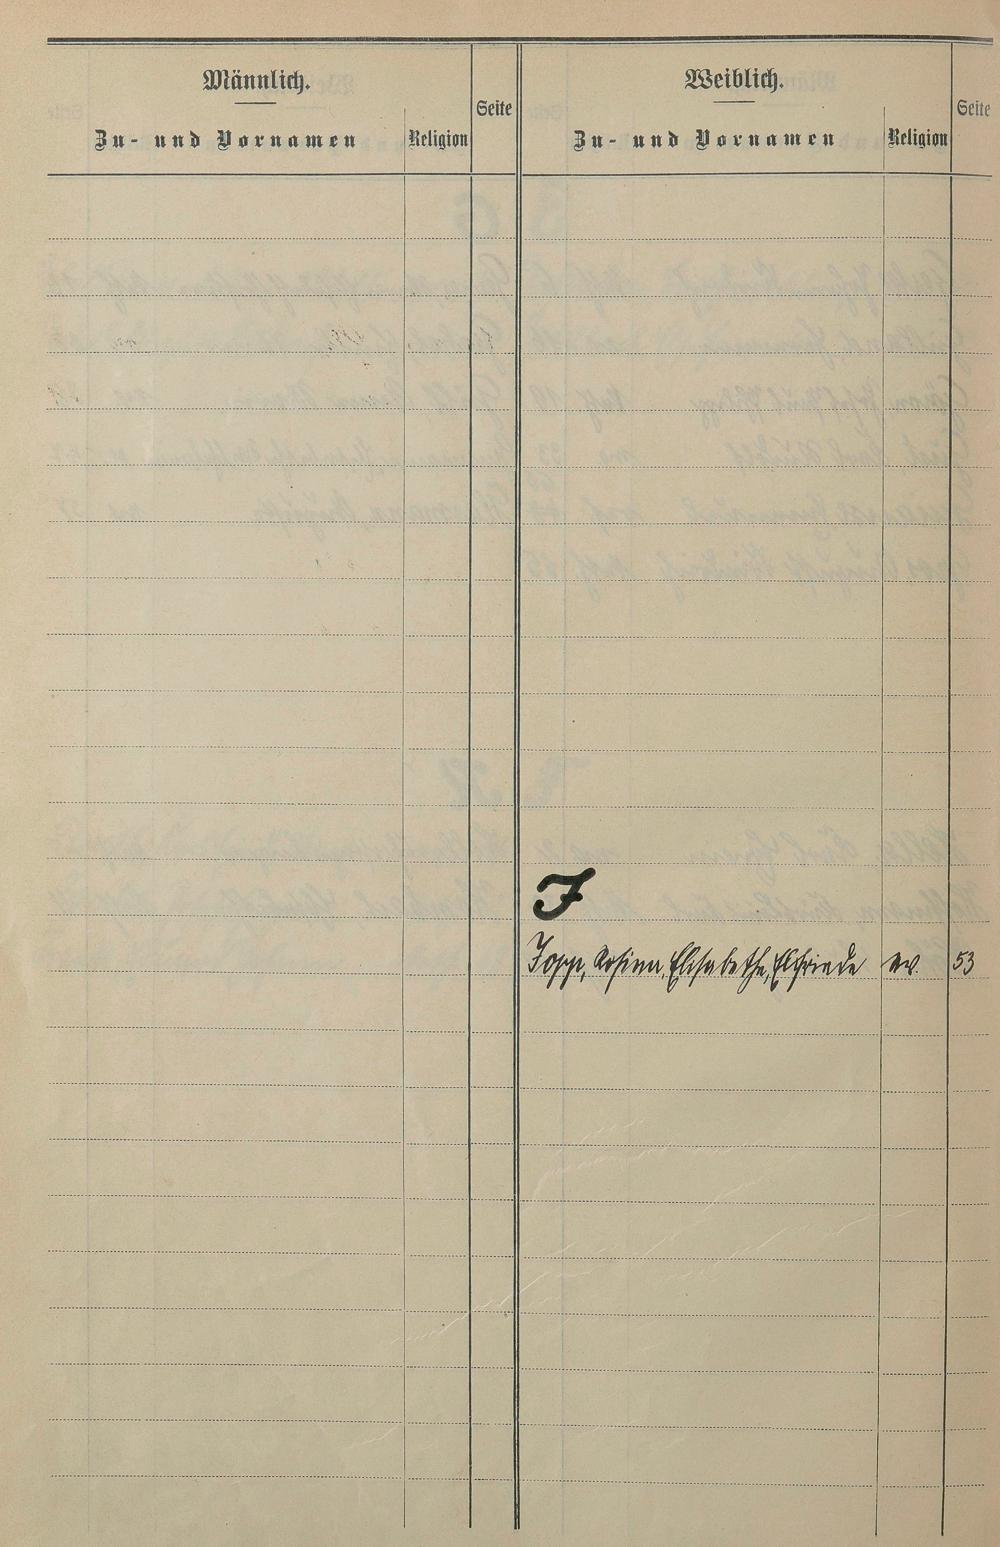 Männlich.
Zu- und Vornamen
Religion
Seite
Weiblich.
Zu- und Vornamen
Religion
Seite
J
Jopp, Rosina, Elisabetha, Elfriede ev. 53